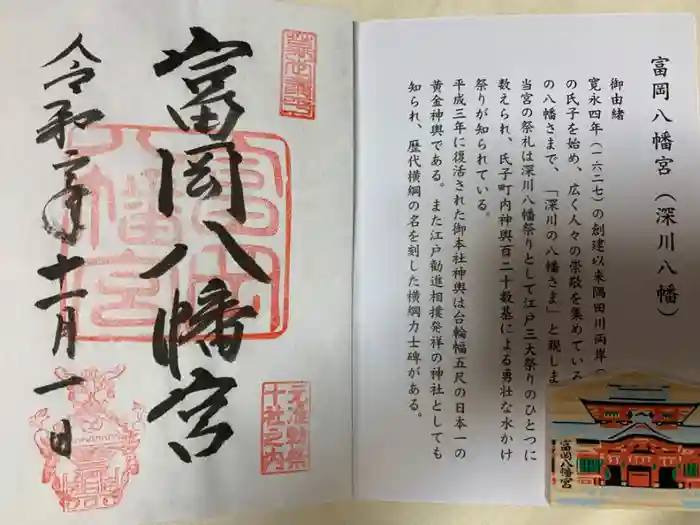 富岡八幡宮（深川八幡）
御由緒
寛永四年（一六二七）の創建以来隅田川両岸（
の氏子を始め、広く人々の崇敬を集めている
の八幡さまで、「深川の八幡さま」と親しま
当宮の祭礼は深川八幡祭りとして江戸三大祭りのひとつに
数えられ、氏子町内神輿百二十数基による勇壮な水かけ
祭りが知られている。
平成三年に復活された御本社神輿は台輪幅五尺の日本一の
黄金神輿である。また江戸勧進相撲発祥の神社としても
知られ、歴代横綱の名を刻した横綱力士碑がある。
富岡八幡宮
富岡八幡宮
富岡八幡宮
元准勅祭
十社之内
令和六年十一月一日